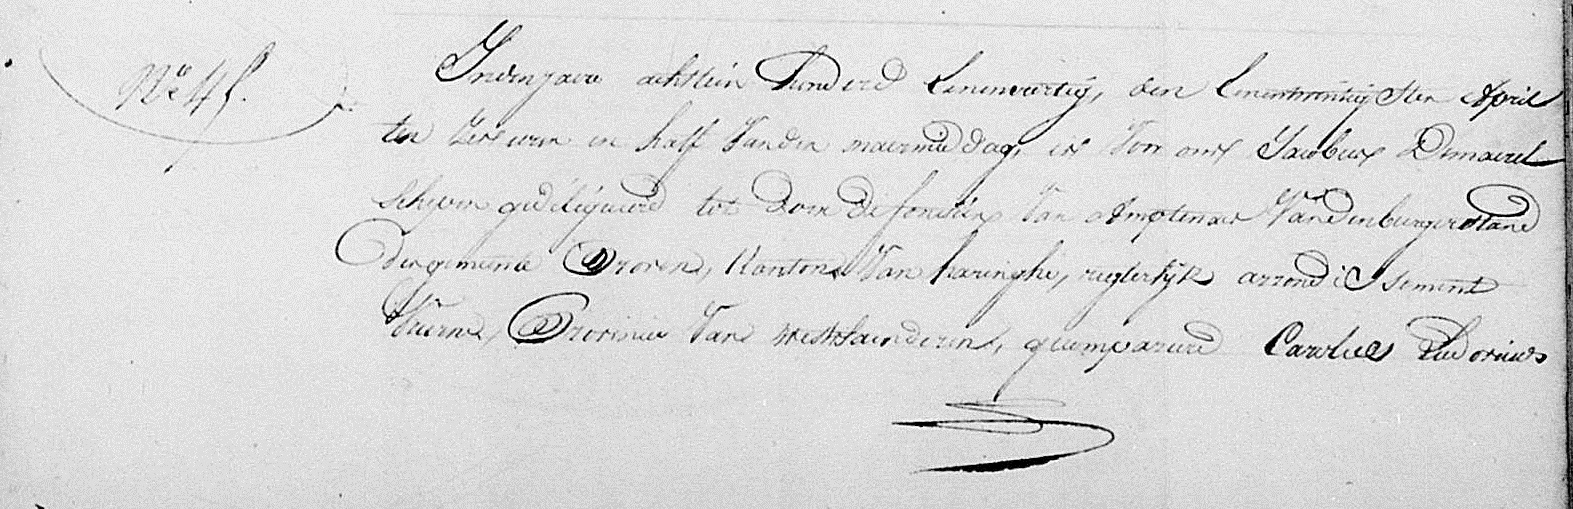 N° 45.
Inden jare achttien honderd Eenenveertig, den Eenentwintig sten April
ten zes uren en half vanden naermiddag, is voor ons Jacobus Demaerel
schepen gedelegueerd tot doen de fonctien van Amptenaer vanden burgerstand
der gemeente Proven, Kanton van haringhe, regterlijk arrondissement
Veurne, Provincie van westvlaenderen, gecompareerd Carolus Ludovicus